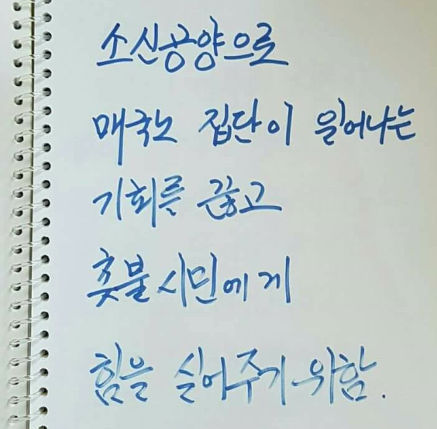 소신공양으로
매국노 집단이 일어나는
기회를 끊고
촛불 시민에게
힘을 실어주기 위함.